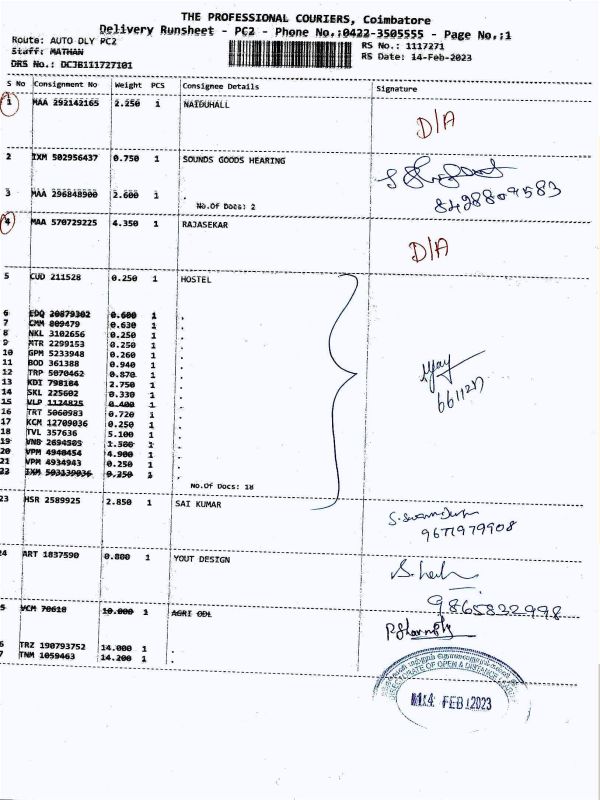 THE PROFESSIONAL COURIERS, Coimbatore
Delivery Runsheet - PC2 - Phone No.:0422-3505555 - Page No.:1
Route: AUTO DLY PC2 RS No.: 1117271
Staff: MATHAN RS Date: 14-Feb-2023
DRS No.: DCJB111727101
S No Consignment No Weight PCS Consignee Details Signature
1 MAA 292142165 2.250 1 NAIDUHALL
D/A
2 IXM 502956437 0.750 1 SOUNDS GOODS HEARING
3 MAA 296848900 2.600 1 .
8428809583
No.Of Docs: 2
4 MAA 570729225 4.350 1 RAJASEKAR
D/A
5 CUD 211528 0.250 1 HOSTEL
6 EDQ 20879302 0.600 1 .
7 CMM 809479 0.630 1 .
8 NKL 3102656 0.250 1 .
9 MTR 2299153 0.250 1 .
10 GPM 5233948 0.260 1 .
11 BOD 361388 0.940 1 .
12 TRP 5070462 0.870 1 .
13 KDI 798184 2.750 1 .
14 SKL 225602 0.330 1 .
15 VLP 1124825 0.400 1 .
16 TRT 5060983 0.720 1 .
17 KCM 12709036 0.250 1 .
18 TVL 357636 5.100 1 .
19 VNB 2694505 1.500 1 .
20 VPM 4948454 4.900 1 .
21 VPM 4934943 0.250 1 .
22 IXM 503139036 0.250 1 .
No.Of Docs: 18
23 HSR 2589925 2.850 1 SAI KUMAR
9677979908
24 ART 1837590 0.800 1 YOUT DESIGN
9865832998
5 VCM 70610 10.000 1 AGRI ODL
6 TRZ 190793752 14.000 1 .
7 TNM 1059463 14.200 1 .
DIRECTORATE OF OPEN & DISTANCE
14 FEB 2023